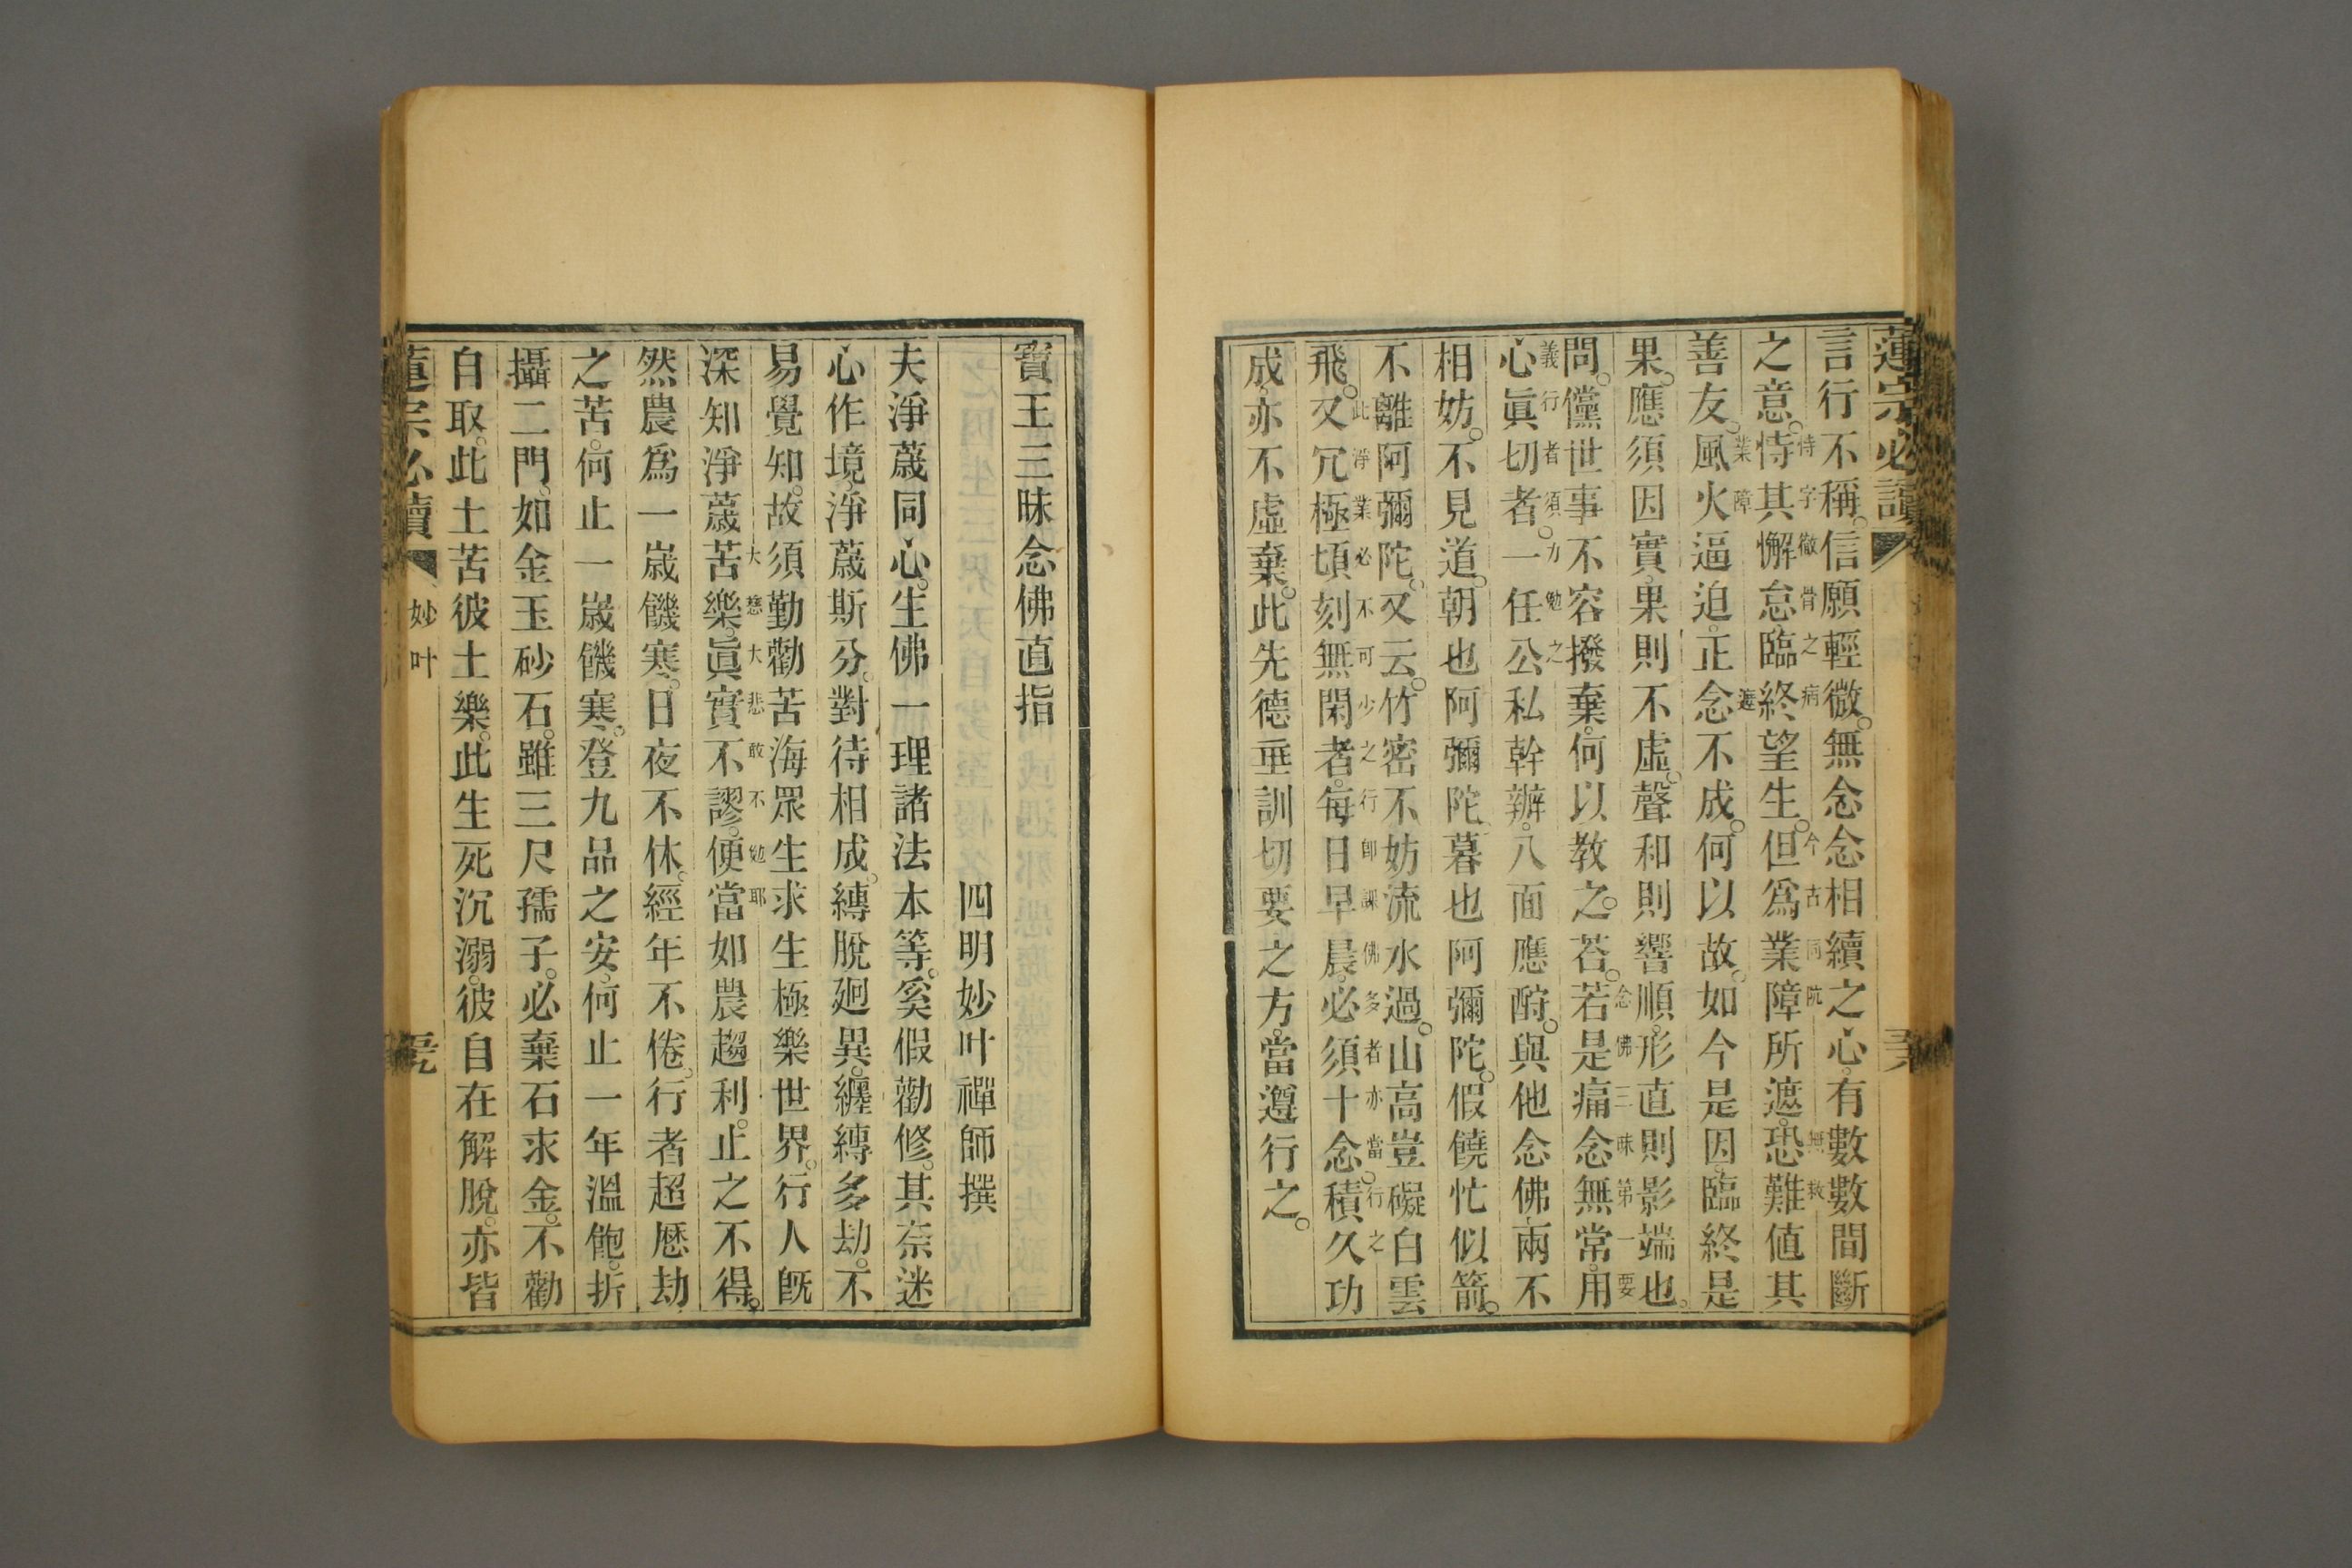 蓮宗必讀
言行不稱。信願輕微。無念念相續之心。有數數間斷
之意。恃其懈怠。臨終望生。但爲業障所遮。恐難値其
恃字徹骨之病
今古同阬無救
善友。風火逼迫。正念不成。何以故。如今是因。臨終是
業障
遮
果。應須因實。果則不虛。聲和則響順。形直則影端也。
問。儻世事不容撥棄。何以教之。荅。若是痛念無常。用
念佛三昧第一要
心眞切者。一任公私幹辦。八面應酧。與他念佛兩不
義行者須力勉之
相妨。不見道。朝也阿彌陀。暮也阿彌陀。假饒忙似箭。
不離阿彌陀。又云。竹密不妨流水過。山高豈礙白雲
飛。又冗極頃刻無閑者。每日早晨。必須十念。積久功
此淨業必不可少之行卽課佛多者亦當行之
成。亦不虛棄。此先德垂訓切要之方。當遵行之。
寶王三昧念佛直指
四明妙叶禪師撰
夫淨薉同心。生佛一理。諸法本等。奚假勸修。其柰迷
心作境。淨薉斯分。對待相成。縛脫迥異。纏縛多劫。不
易覺知。故須勤勸苦海眾生求生極樂世界。行人旣
深知淨薉苦樂。眞實不謬。便當如農趨利。止之不得。
大慈大悲敢不勉耶
然農爲一歲饑寒。日夜不休。經年不倦。行者超歷劫
之苦。何止一歲饑寒。登九品之安。何止一年溫飽。折
攝二門。如金玉砂石。雖三尺孺子。必棄石求金。不勸
自取。此土苦彼土樂。此生死沉溺。彼自在解脫。亦皆
蓮宗必讀
妙叶